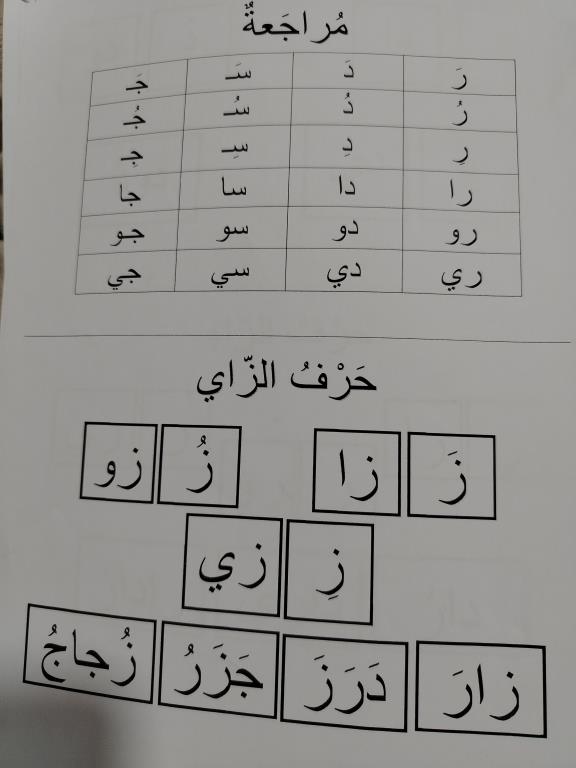 مُراجَعةٌ
رَ دَ سَـ جَـ
رُ دُ سُـ جُـ
رِ دِ سِـ جِـ
را دا سا جا
رو دو سو جو
ري دي سي جي
حَرْفُ الزّاي
زَ زا زُ زو
زِ زي
زارَ دَرَزَ جَزَرُ زُجاجُ